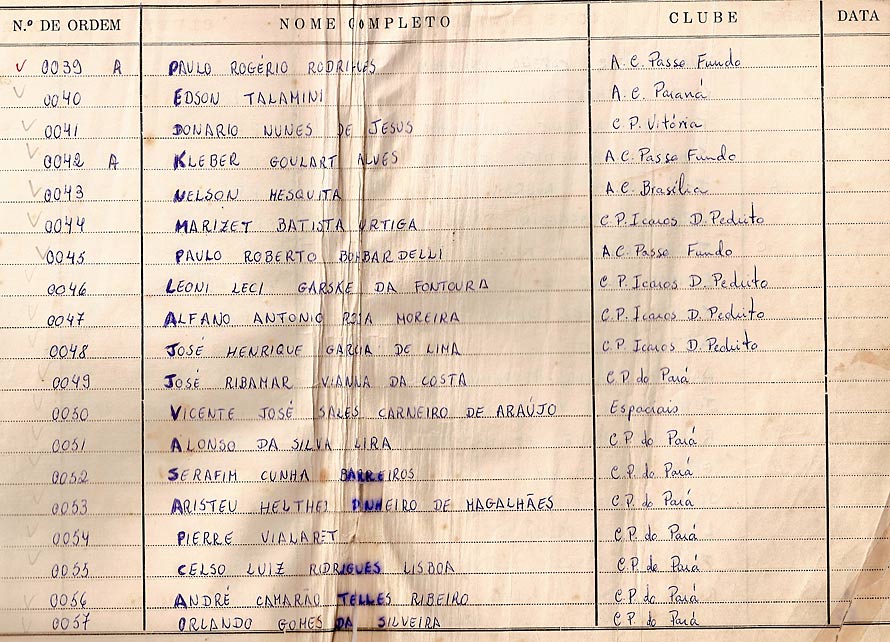 N.º DE ORDEM NOME COMPLETO CLUBE DATA
0039 A PAULO ROGÉRIO RODRIGUES A.C. Passo Fundo
0040 EDSON TALAMINI A.C. Paraná
0041 DONARIO NUNES DE JESUS C P. Vitória
0042 A KLEBER GOULART ALVES A.C. Passo Fundo
0043 NELSON MESQUITA A.C. Brasília
0044 MARIZET BATISTA URTIGA C P. Icaros D. Peduto
0045 PAULO ROBERTO BOMBARDELLI A.C. Passo Fundo
0046 LEONI LECI GARSKE DA FONTOURA C P. Icaros D. Peduto
0047 ALFANO ANTONIO MOREIRA C.P. Icaros D. Peduto
0048 JOSÉ HENRIQUE GARCIA DE LIMA C.P. Icaros D. Peduto
0049 JOSÉ RIBAMAR VIANNA DA COSTA C P. do Pará
0050 VICENTE JOSÉ SALES CARNEIRO DE ARAÚJO Espaciais
0051 ALONSO DA SILVA LIRA C P. do Pará
0052 SERAFIM CUNHA BARREIROS C P. do Pará
0053 ARISTEU PINHEIRO DE MAGALHÃES C P. do Pará
0054 PIERRE VIALARET C P. do Pará
0055 CELSO LUIZ RIDRIGUES LISBOA C P. do Pará
0056 ANDRÉ CAMARÃO TELLES RIBEIRO C P. do Pará
0057 ORLANDO GOMES DA SILVEIRA C P. do Pará